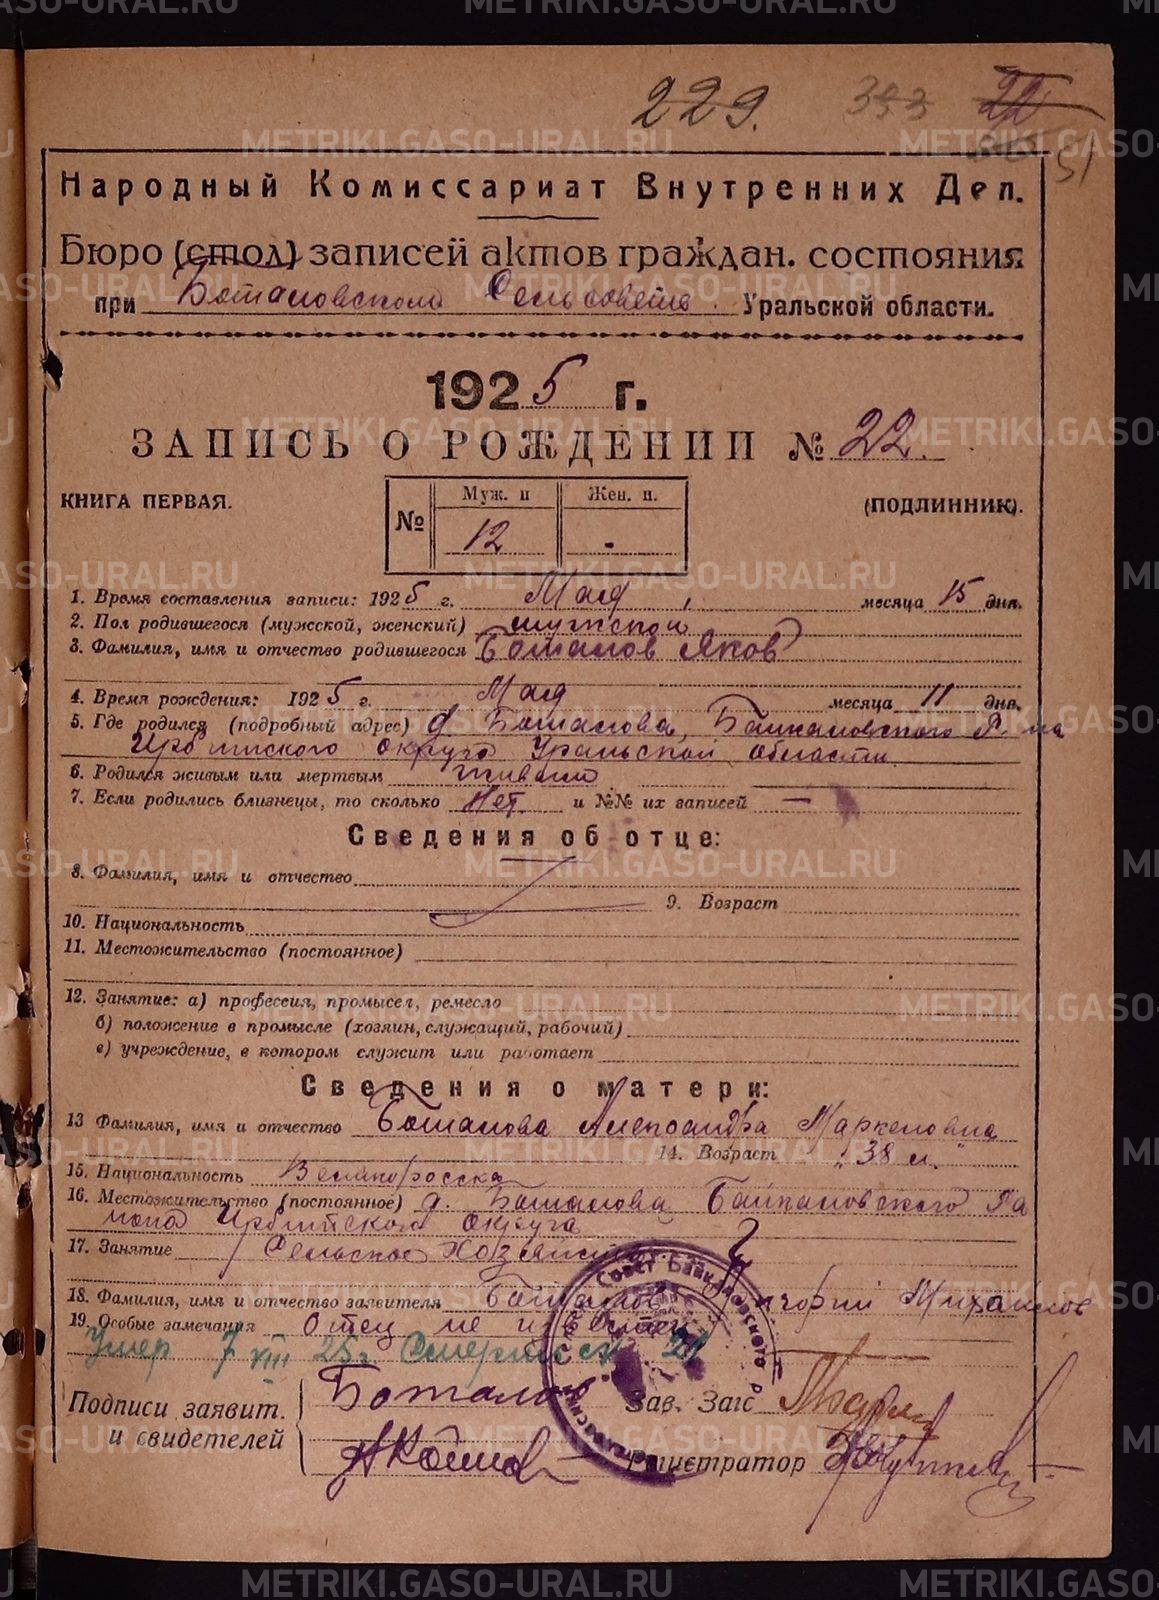 229. 393 22
51
Народный Комиссариат Внутренних Дел.
Бюро (стол) записей актов граждан. состояния
при Боталовском Сельсовете Уральской области.
1925 г.
ЗАПИСЬ О РОЖДЕНИИ № 22.
КНИГА ПЕРВАЯ.
(ПОДЛИННИК).
№ Муж. п Жен. п.
12 -
1. Время составления записи: 1925 г. Мая месяца 15 дня.
2. Пол родившегося (мужской, женский) мужской
3. Фамилия, имя и отчество родившегося Боталов Яков
4. Время рождения: 1925 г. Мая месяца 11 дня.
5. Где родился (подробный адрес) д. Боталова, Байкаловского Р-на
Ирбитского округа Уральской области
6. Родился живым или мертвым живым
7. Если родились близнецы, то сколько Нет и №№ их записей —
Сведения об отце:
8. Фамилия, имя и отчество
9. Возраст
10. Национальность
11. Местожительство (постоянное)
12. Занятие: а) профессия, промысел, ремесло
б) положение в промысле (хозяин, служащий, рабочий)
в) учреждение, в котором служит или работает
Сведения о матери:
13 Фамилия, имя и отчество Боталова Александра Маркеловна
14. Возраст "38 л."
15. Национальность Великоросска
16. Местожительство (постоянное) д. Боталова Байкаловского Ра
иона Ирбитского округа
17. Занятие Сельское Хозяйство
18. Фамилия, имя и отчество заявителя Боталов Григорий Михайлов
19. Особые замечания Отец не известен
Умер 7 VIII 25 г
Подписи заявит. Боталов Зав. Загс
и свидетелей Регистратор
Совет Байкаловского р
METRIKI.GASO-URAL.RU